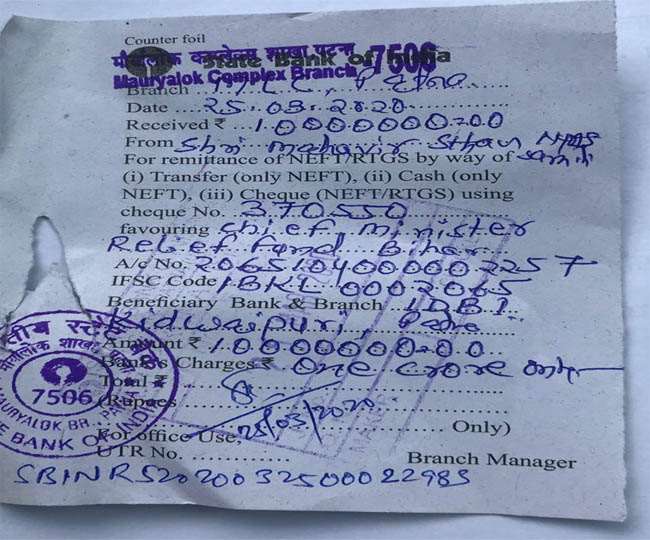 Counter foil
State Bank of India
मौर्यालोक कम्पलेक्स शाखा पटना 7506
Mauryalok Complex Branch
Branch M.L.C., Patna
Date 25.03.2020
Received ₹ 10000000=00
From Shri Mahavir Sthan Nyas
For remittance of NEFT/RTGS by way of Samiti
(i) Transfer (only NEFT), (ii) Cash (only
NEFT), (iii) Cheque (NEFT/RTGS) using
cheque No. 370550
favouring Chief Minister
Relief Fund Bihar
A/c No. 2065104000002257
IFSC Code IBKL 0002065
Beneficiary Bank & Branch IDBI
Kidwaipuri, Patna
Amount ₹ 10000000=00
Bank's Charges ₹ One crore only
Total ₹
(Rupees
25/03/2020
Only)
For office Use
UTR No.
Branch Manager
SBINR52020032500022983
7506
MAURYALOK, BR., PATNA
STATE BANK OF INDIA